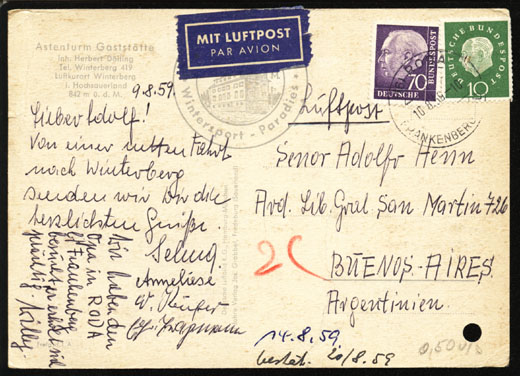 Astenturm Gaststätte
Inh. Herbert Dölling
Tel. Winterberg 419
Luftkurort Winterberg
i. Hochsauerland
842 m ü. d. M.
MIT LUFTPOST
PAR AVION
Wintersport - Paradies
70
DEUTSCHE BUNDESPOST
DEUTSCHE BUNDESPOST
10
FRANKENBERG
9.8.59.
Luftpost
Lieber Adolf!
Von einer netten Fahrt
nach Winterberg
senden wir Dir die
herzlichsten Grüße.
Selma
Anneliese
Wir haben den
Opa in RODA
b/ Frankenberg
Willy
Senor Adolfo Henn
Avd. Lib. Gral San Martin 726
BUENOS-AIRES.
Argentinien.
14.8.59
20/8.59